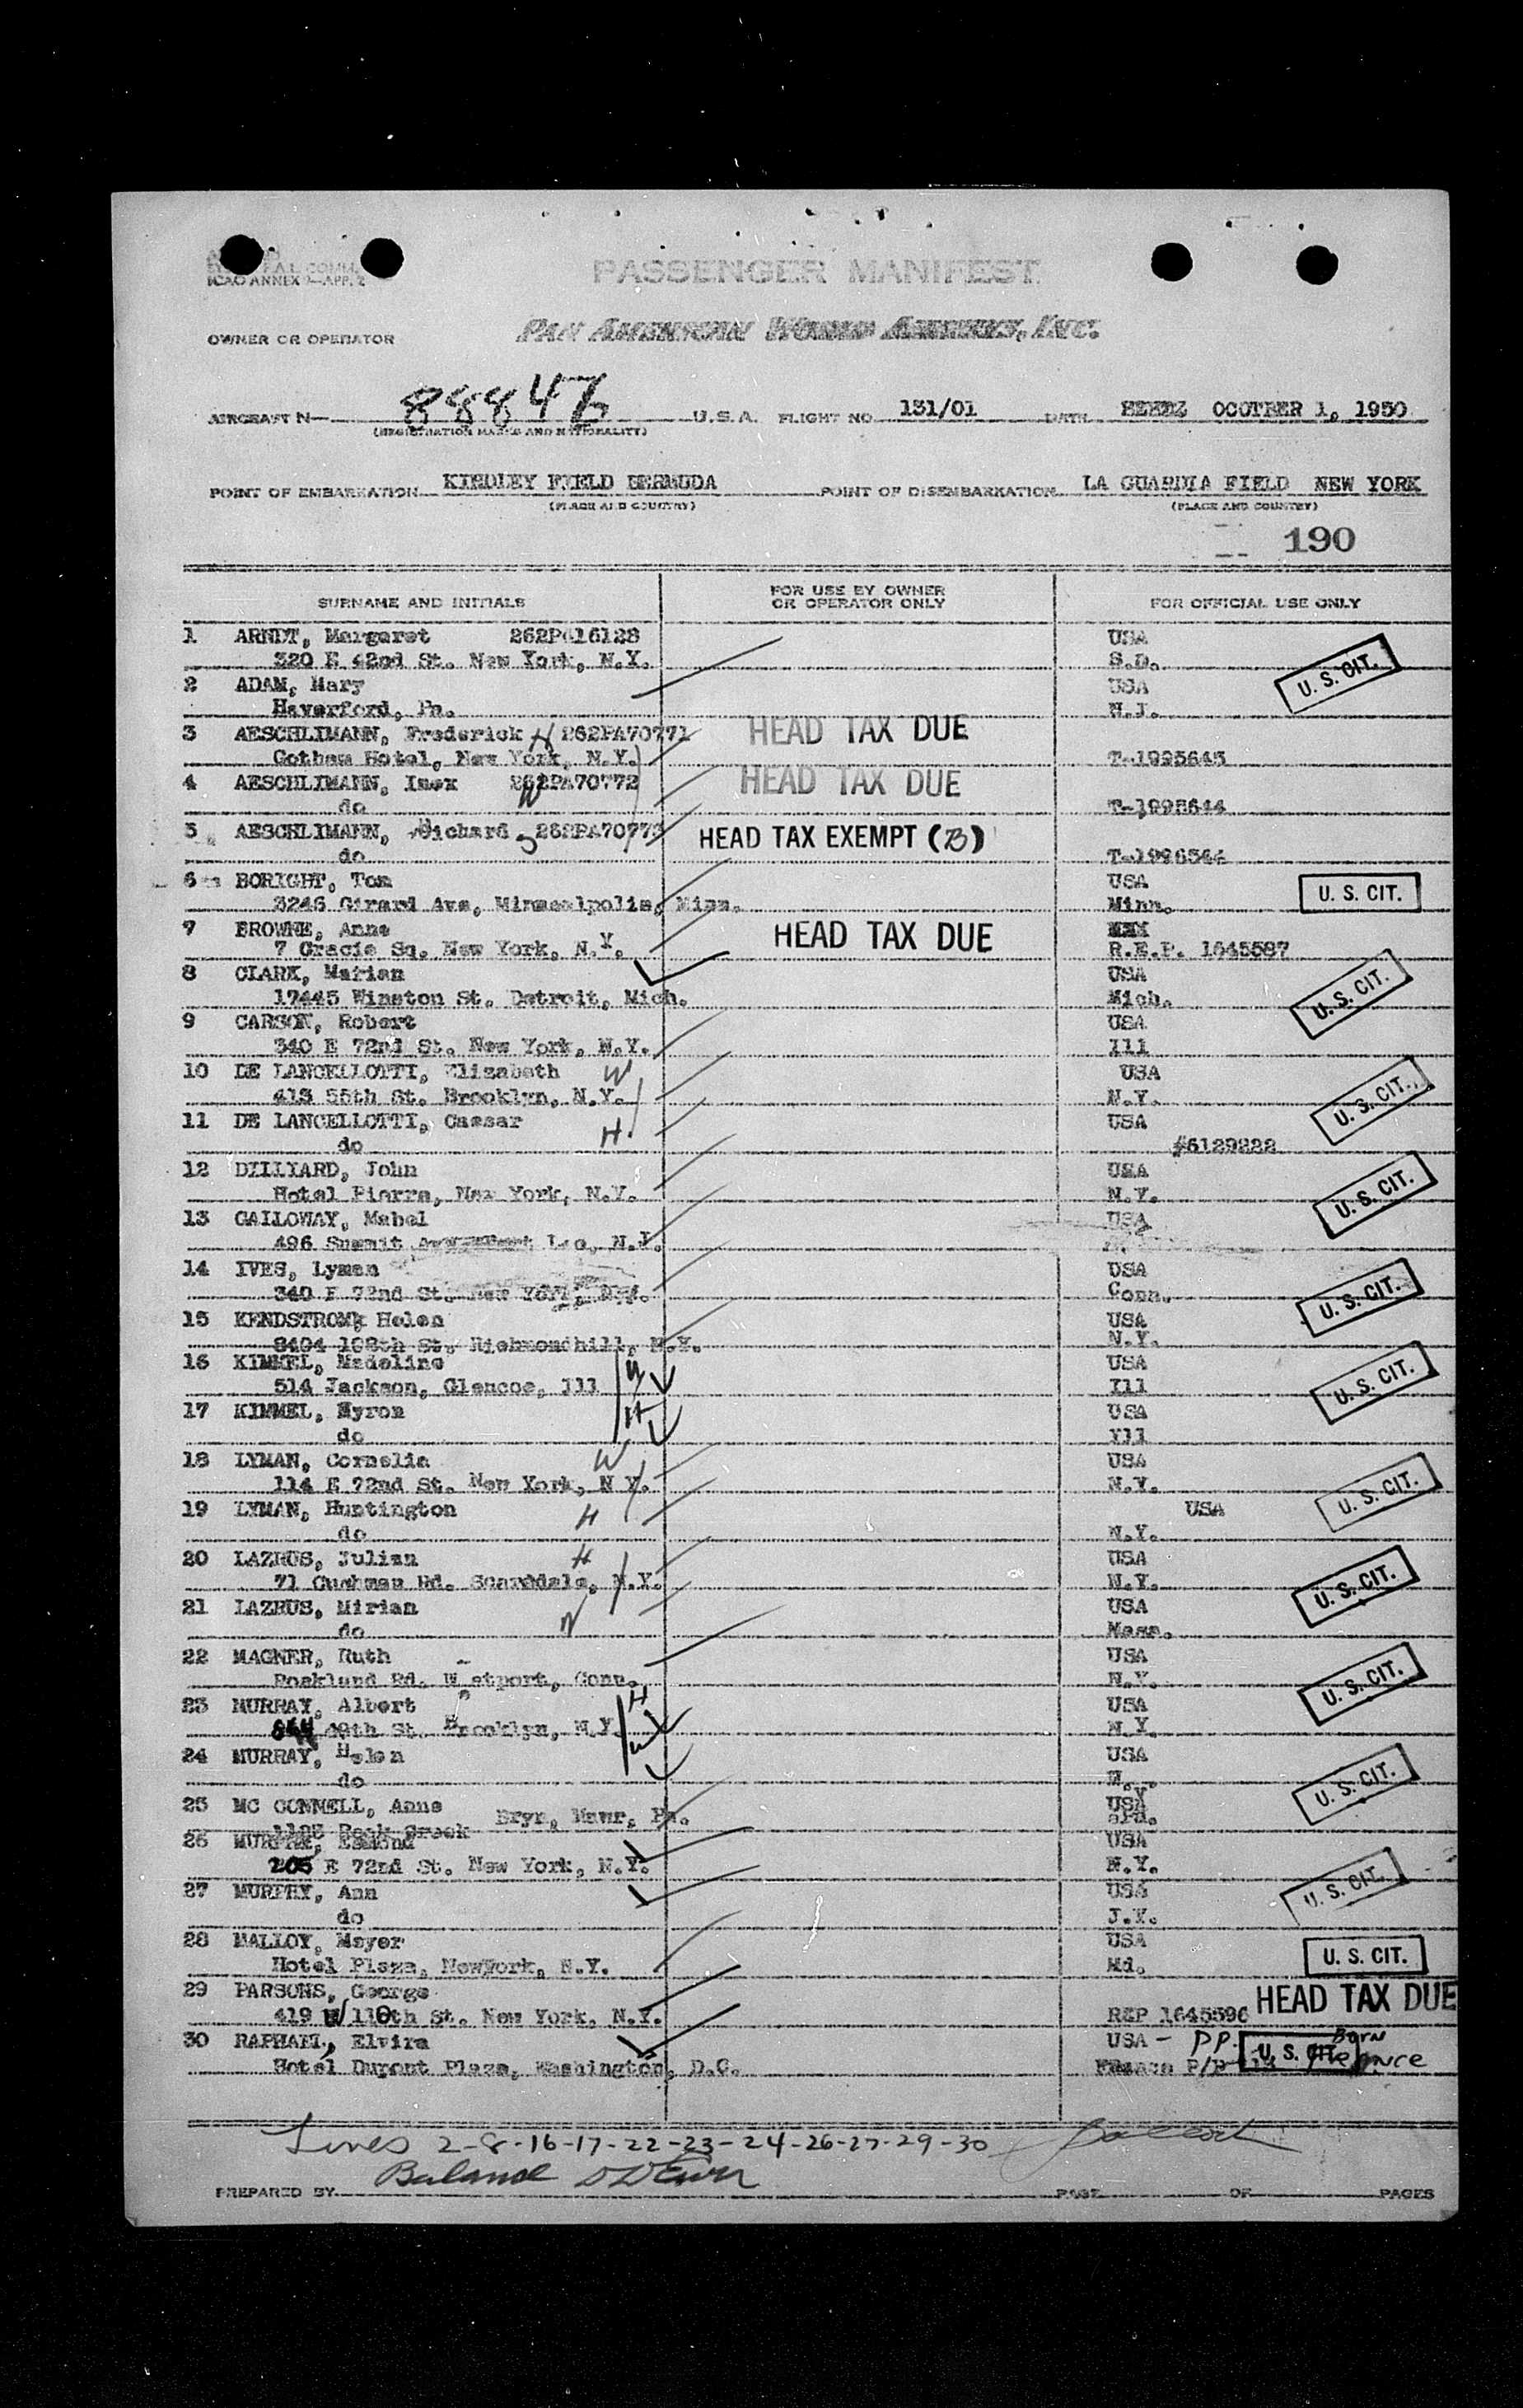 F.A.L. COMM.
ICAO ANNEX 9—APP. 2
PASSENGER MANIFEST
OWNER OR OPERATOR PAN AMERICAN WORLD AIRWAYS, INC.
AIRCRAFT N— 88847 U.S.A. FLIGHT NO. 131/01 DATE OCOTBER 1, 1950
(REGISTRATION MARKS AND NATIONALITY)
POINT OF EMBARKATION KINDLEY FIELD BERMUDA POINT OF DISEMBARKATION LA GUARDIA FIELD NEW YORK
(PLACE AND COUNTRY) (PLACE AND COUNTRY)
190
SURNAME AND INITIALS FOR USE BY OWNER OR OPERATOR ONLY FOR OFFICIAL USE ONLY
1 ARNDT, Margaret 262PA16128 USA
320 E 42nd St. New York, N.Y. S.D. U. S. CIT.
2 ADAM, Mary USA
Haverford, Pa. N.J.
3 AESCHLIMANN, Frederick H 262PA70771 HEAD TAX DUE
Gotham Hotel, New York, N.Y. T-1995643
4 AESCHLIMANN, Inex W 262PA70772 HEAD TAX DUE
do T-1995644
5 AESCHLIMANN, Richard S 262PA70773 HEAD TAX EXEMPT (B)
do
6 BORIGHT, Tom USA
3246 Girard Ave, Minnealpolis, Minn. Minn. U. S. CIT.
7 BROWNE, Anne HEAD TAX DUE
7 Gracie Sq. New York, N.Y. R.E.P. 1645587
8 CLARK, Marian USA
17445 Winston St. Detroit, Mich. Mich. U. S. CIT.
9 CARSON, Robert USA
340 E 72nd St. New York, N.Y. Ill
10 DE LANCELLOTTI, Elizabeth W USA
413 55th St. Brooklyn, N.Y. N.Y. U. S. CIT.
11 DE LANCELLOTTI, Caesar USA
do H #6129222
12 DILLYARD, John USA
Hotel Pierre, New York, N.Y. N.Y. U. S. CIT.
13 GALLOWAY, Mabel USA
496 Summit Lee, N.J.
14 IVES, Lyman USA
340 E 72nd St. New York, N.Y. Conn. U. S. CIT.
15 KENDSTROM, Helen USA
8404 108th St, Richmondhill, N.Y. N.Y.
16 KIMMEL, Madeline W USA
514 Jackson, Glencoe, Ill Ill U. S. CIT.
17 KIMMEL, Myron H USA
do Ill
18 LYMAN, Cornelia W USA
114 E 72nd St. New York, N Y. N.Y. U. S. CIT.
19 LYMAN, Huntington H USA
do N.Y.
20 LAZRUS, Julian H USA
71 Cushman Rd. Scarsdale, N.Y. N.Y. U. S. CIT.
21 LAZRUS, Mirian W USA
do Mass.
22 MAGNER, Ruth USA
Rd. Westport, Conn. N.Y. U. S. CIT.
23 MURRAY, Albert H USA
844 49th St. Brooklyn, N.Y. W N.Y.
24 MURRAY, Helen USA
do N.Y. U. S. CIT.
25 MC CONNELL, Anne Bryn, Mawr, Pa. USA
26 MURPHY, Esmond USA
205 E 72nd St. New York, N.Y. N.Y.
27 MURPHY, Ann USA U. S. CIT.
do
28 MALLOY, Mayer USA
Hotel Plaza, NewYork, N.Y. Md. U. S. CIT.
29 PARSONS, George HEAD TAX DUE
419 W 110th St. New York, N.Y. REP 1645596
30 RAPHAEL, Elvira USA – PP. Born
Hotel Dupont Plaza, Washington, D.C. U. S. CIT. France
Lines 2-8-16-17-22-23-24-26-27-29-30
Balance
PREPARED BY PAGE OF PAGES